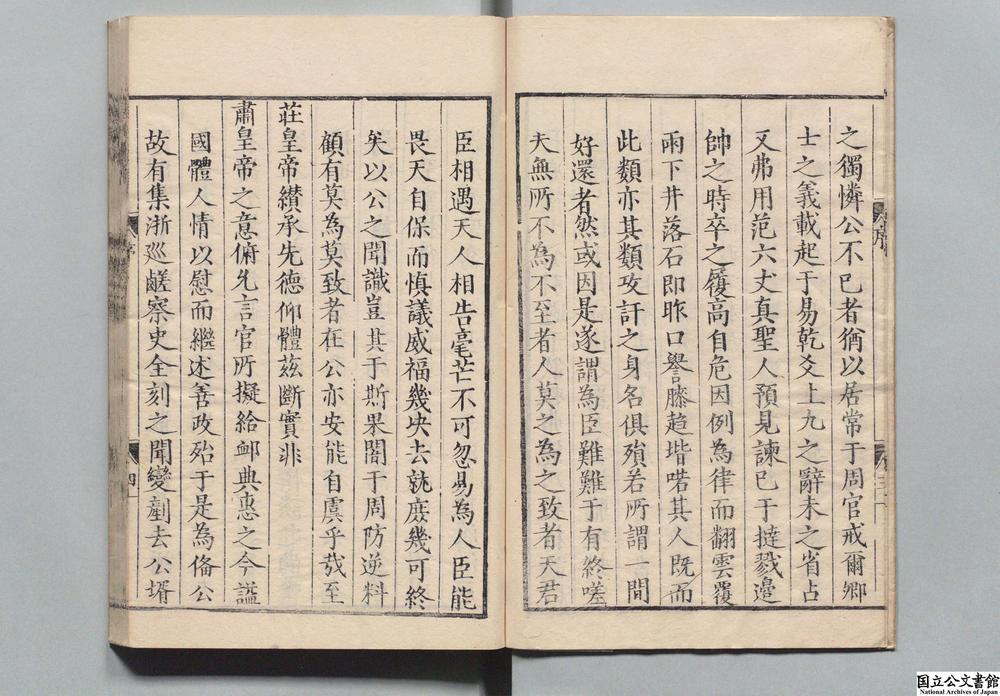 之獨憐公不已者猶以居常于周官戒爾卿
士之義載起于易乾爻上九之辭未之省占
又弗用范六丈真聖人預見諫已于撻戮邉
帥之時卒之履高自危因例為律而翻雲覆
雨下井落石即昨口譽膝趋堦喏其人既而
此類亦其類攻訐之身名俱殞若所謂一間
好還者然或因是遂謂為臣難難于有終嗟
夫無所不為不至者人莫之為之致者天君
臣相遇天人相告毫芒不可忽易為人臣能
畏天自保而慎議威福幾央去就庶幾可終
矣以公之聞識豈其于斯果闇于周防逆料
顧有莫為莫致者在公亦安能自虞乎哉至
莊皇帝纉承先德仰體兹斷實非
肅皇帝之意俯允言官所擬給卹典惠之今謚
國體人情以慰而繼述善政殆于是為俻公
故有集浙巡鹺察史全刻之聞變劃去公壻
序
四
国立公文書館
National Archives of Japan